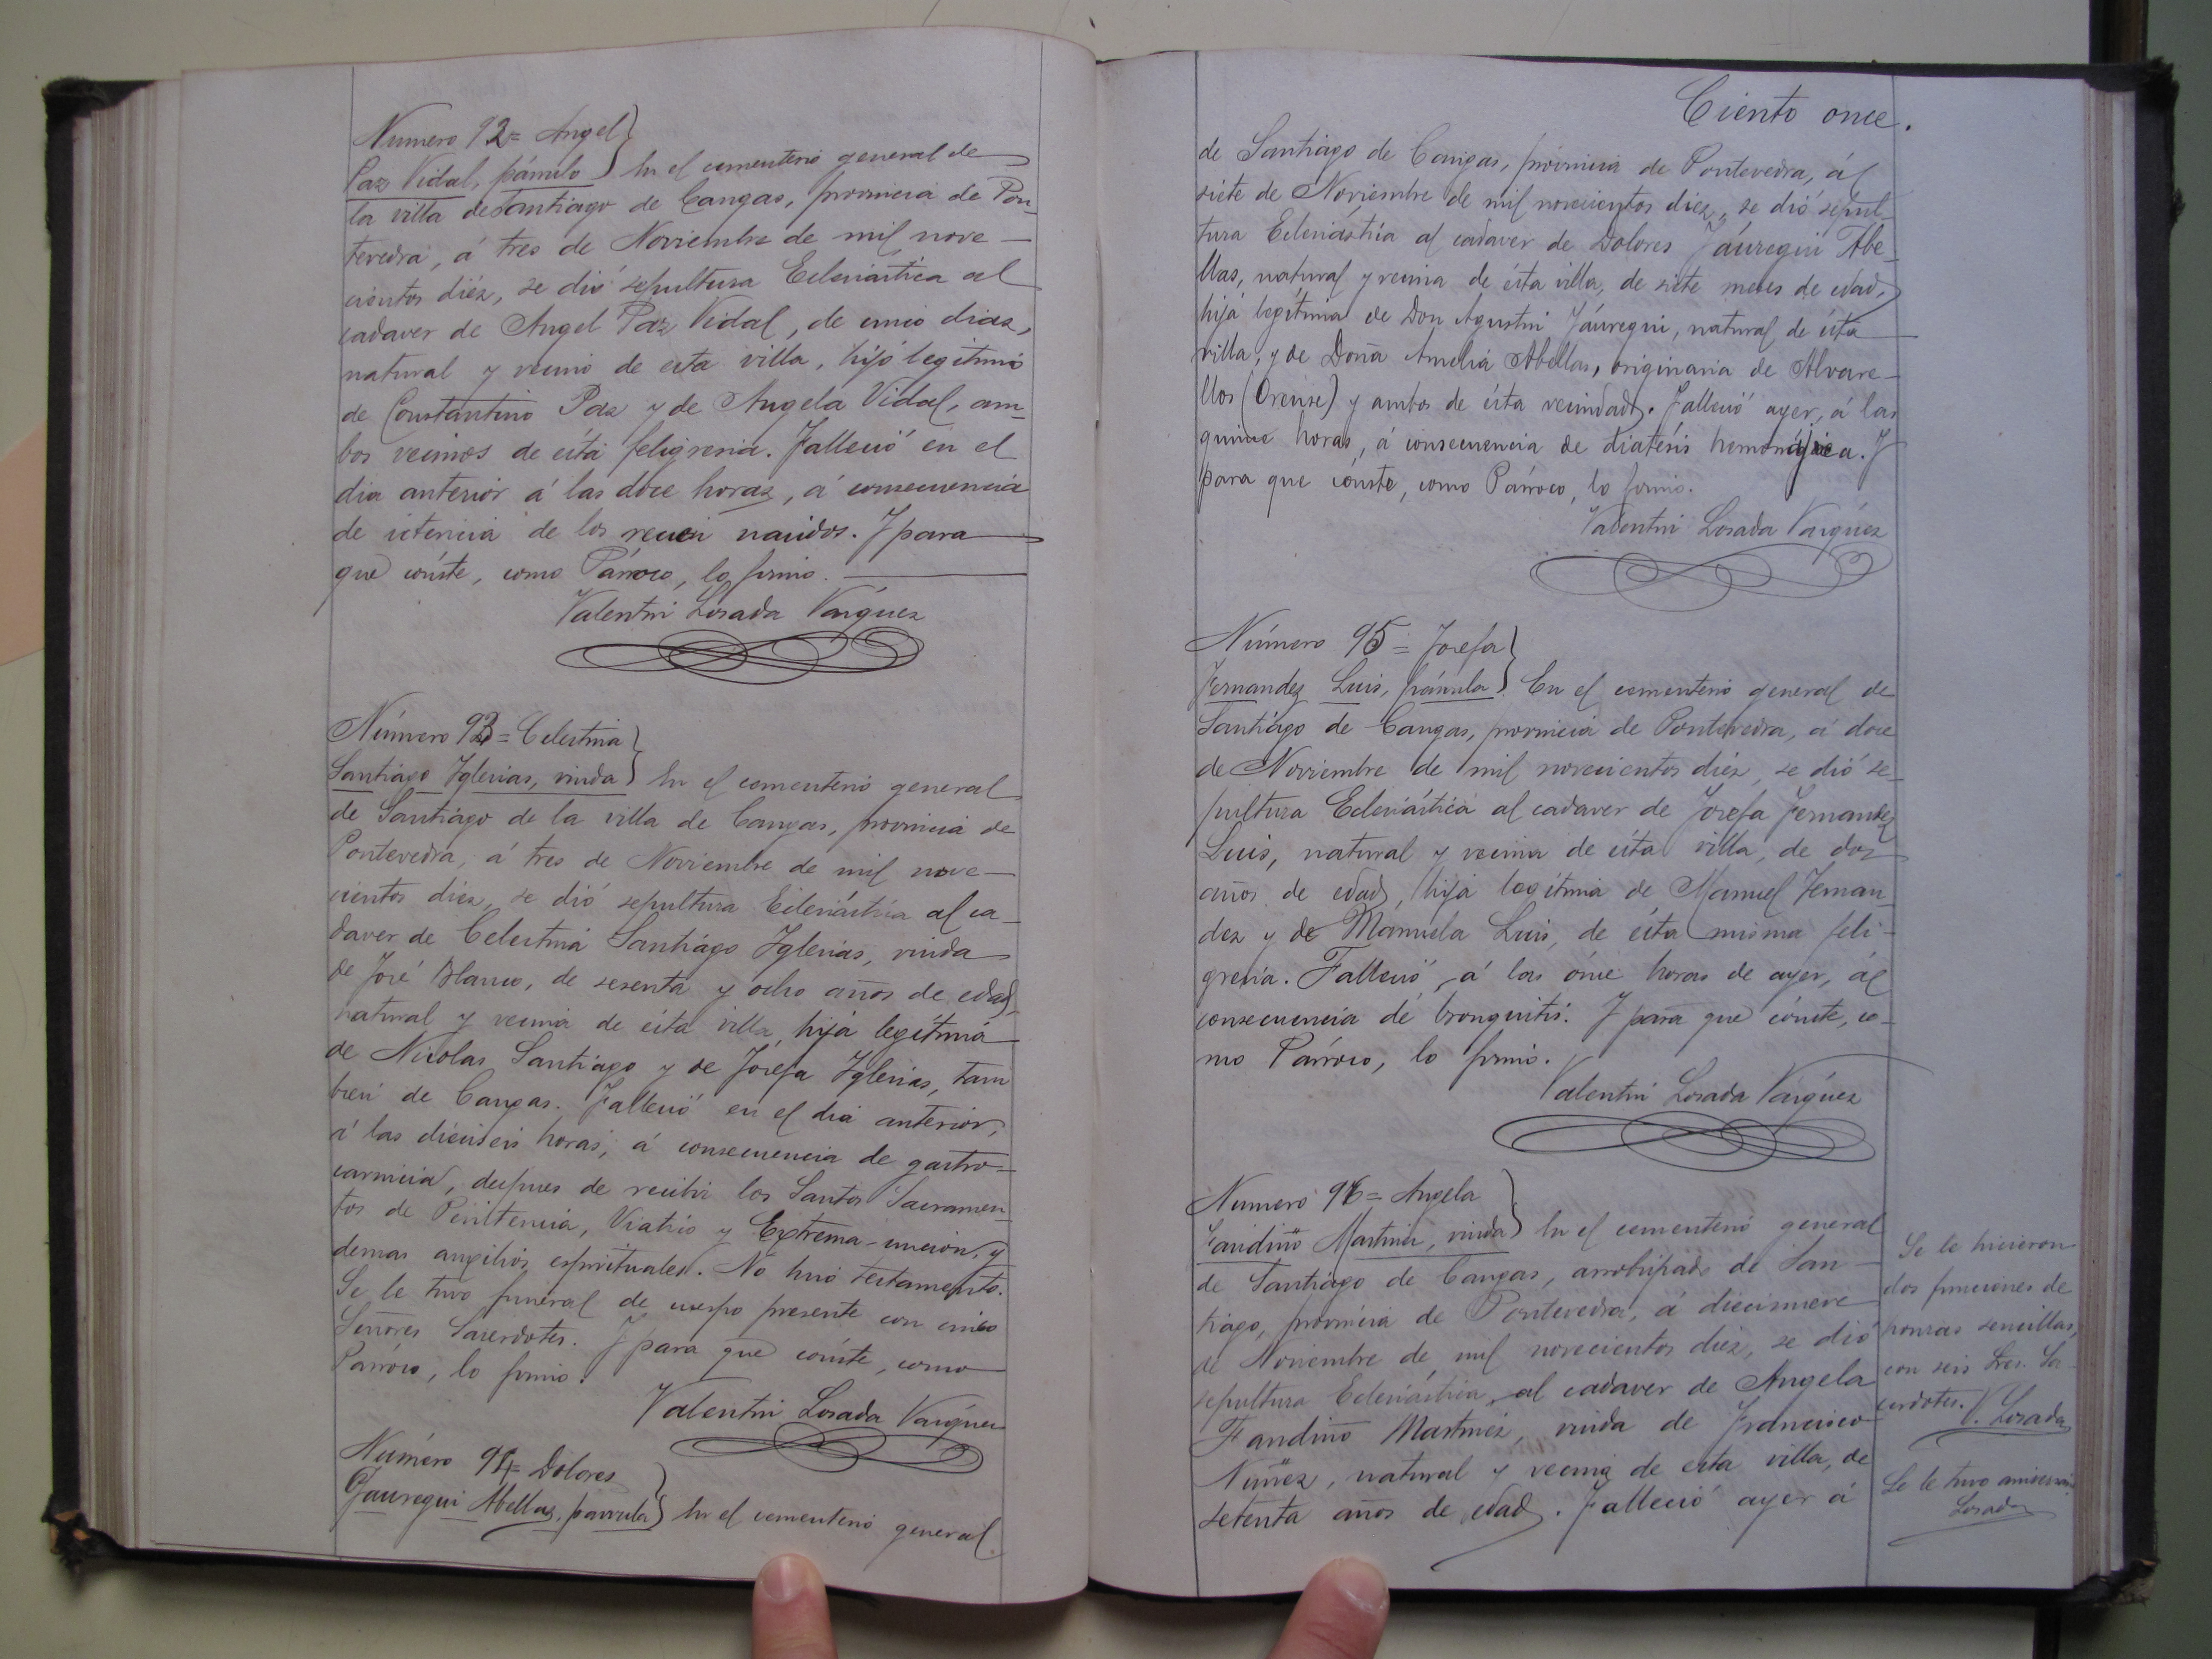 Numero 92= Angel
Paz Vidal, párvulo } En el cementerio general de
la villa de Santiago de Cangas, provincia de Pon-
tevedra, á tres de Noviembre de mil nove-
cientos diéz, se dió sepultura Eclesiástica al
cadaver de Angel Paz Vidal, de cinco dias,
natural y vecino de esta villa, hijo legítimo
de Constantino Paz y de Angela Vidal, am-
bos vecinos de ésta feligresia. Falleció en el
dia anterior á las doce horas, á consecuencia
de ictericia de los recien nacidos. Y para
que cónste, como Párroco, lo firmo.
Valentin Losada Vazquez
Número 93= Celestina
Santiago Yglesias, viuda } En el cementerio general
de Santiago de la villa de Cangas, provincia de
Pontevedra, á tres de Noviembre de mil nove-
cientos diez, se dió sepultura Eclesiástica al ca-
daver de Celestina Santiago Yglesias, viuda
de José Blanco, de sesenta y ocho años de edad,
natural y vecina de ésta villa, hija legítima
de Nicolas Santiago y de Josefa Yglesias, tam
bien de Cangas. Falleció en el dia anterior,
á las dieciseis horas, á consecuencia de gastro-
carnicia, despues de recibir los Santos Sacramen-
tos de Penitencia, Viatico y Extrema-uncion, y
demas auxilios espirituales. No hizo testamento.
Se le tuvo funeral de cuerpo presente con cinco
Señores Sacerdotes. Y para que cónste, como
Párroco, lo firmo.
Valentin Losada Vazquez
Número 94= Dolores
Jauregui Abellas, parvula } En el cementerio general
Ciento once.
de Santiago de Cangas, provincia de Pontevedra, á
siete de Noviembre de mil novecientos diez, se dió sepul-
tura Eclesiástica al cadaver de Dolores Jáuregui Abe-
llas, natural y vecina de ésta villa, de siete meses de edad,
hija legítima de Don Agustin Jáuregui, natural de ésta
villa, y de Doña Amelia Abellas, originaria de Alvare-
llos (Orense) y ambos de ésta vecindad. Falleció ayer, á las
quince horas, á consecuencia de diatésis hemorrájica. Y
para que cónste, como Párroco, lo firmo.
Valentin Losada Vazquez
Número 95= Josefa
Fernandez Luis, párvula } En el cementerio general de
Santiago de Cangas, provincia de Pontevedra, á doce
de Noviembre de mil novecientos diéz, se dió se-
pultura Eclesiástica al cadaver de Josefa Fernandez
Luis, natural y vecina de ésta villa, de dos
años de edad, hija legítima de Manuel Fernan-
dez y de Manuela Luis, de ésta misma feli-
gresia. Falleció, á las ónce horas de ayer, á
consecuencia de bronquitis. Y para que cónste, co-
mo Párroco, lo firmo.
Valentin Losada Vazquez
Numero 96= Angela
Fandiño Martinez, viuda } En el cementerio general
de Santiago de Cangas, arzobispado de San-
tiago, provincia de Pontevedra, á diecinueve
de Noviembre de mil novecientos diéz, se dió
sepultura Eclesiástica, al cadaver de Angela
Fandiño Martinez, viuda de Francisco
Nuñez, natural y vecina de esta villa, de
setenta años de edad. Falleció ayer á
Se le hicieron
dos funciones de
honras sencillas,
con seis Sres. Sa-
cerdotes. V. Losada
Se le tuvo aniversario
Losada